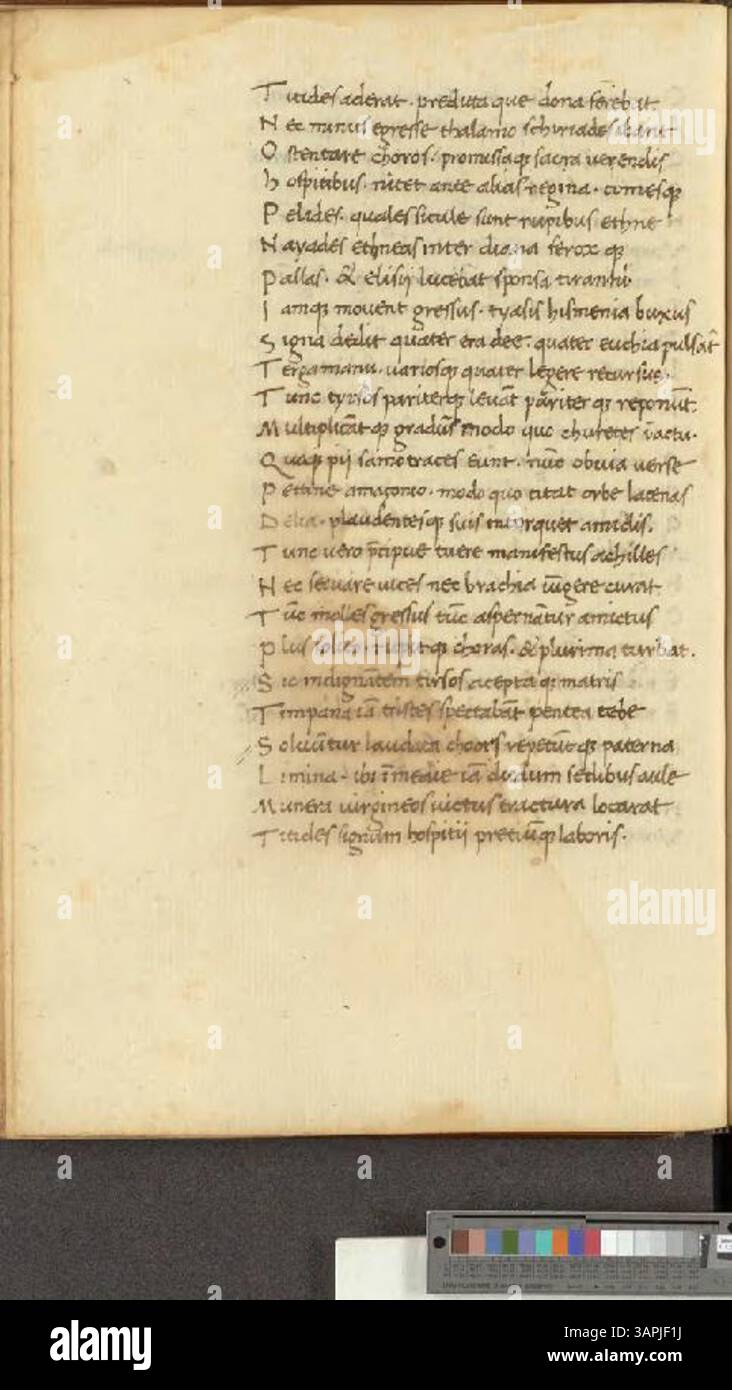 T itides aderat. preditta que dona ferebat.
N ec minus egresse thalamo schiriades ibant
O stentare choros. promissaq sacra verendis
h ospitibus. nitet ante alias regina. comesq
P elides. quales sicule sunt rupibus ethne
N ayades ethneas inter diana ferox q
P allas. & elisij lucebat sponsa tiranni.
I amq movent gressus. tyasis hismenia buxus
S igna dedit quater era dee. quater euchia pulsat
T erga manu. variosq quater legere recursus.
T unc tyrsos pariterq levāt pariter q reponūt.
M ultiplicāt q gradūs modo quo churetes
Q uaq pij samotraces eunt. nūc obvia verse
P ectine amaçonio. modo quo citat orbe lacenas
D elia. plaudentesq suis intorquet amiclis.
T unc vero p̄cipue tuere manifestus achilles
N ec servare vices nec brachia iūgere curat
T ūc molles gressus tūc aspernātur amictus
P lus solito. rupit q choras. & plurima turbat.
S ic indignātem tirsos acepta q matris
T impana iā tristes spectabāt pentea tebe
S oluūtur laudata choors repetūt q paterna
L imina. ibi ī medie iā dudum sedibus aule
M unera virgineos tractura locarat
T itides signum hospitii pretiūq laboris.
alamy
alamy
alamy
alamy
Image ID: 3APJF1J
www.alamy.com